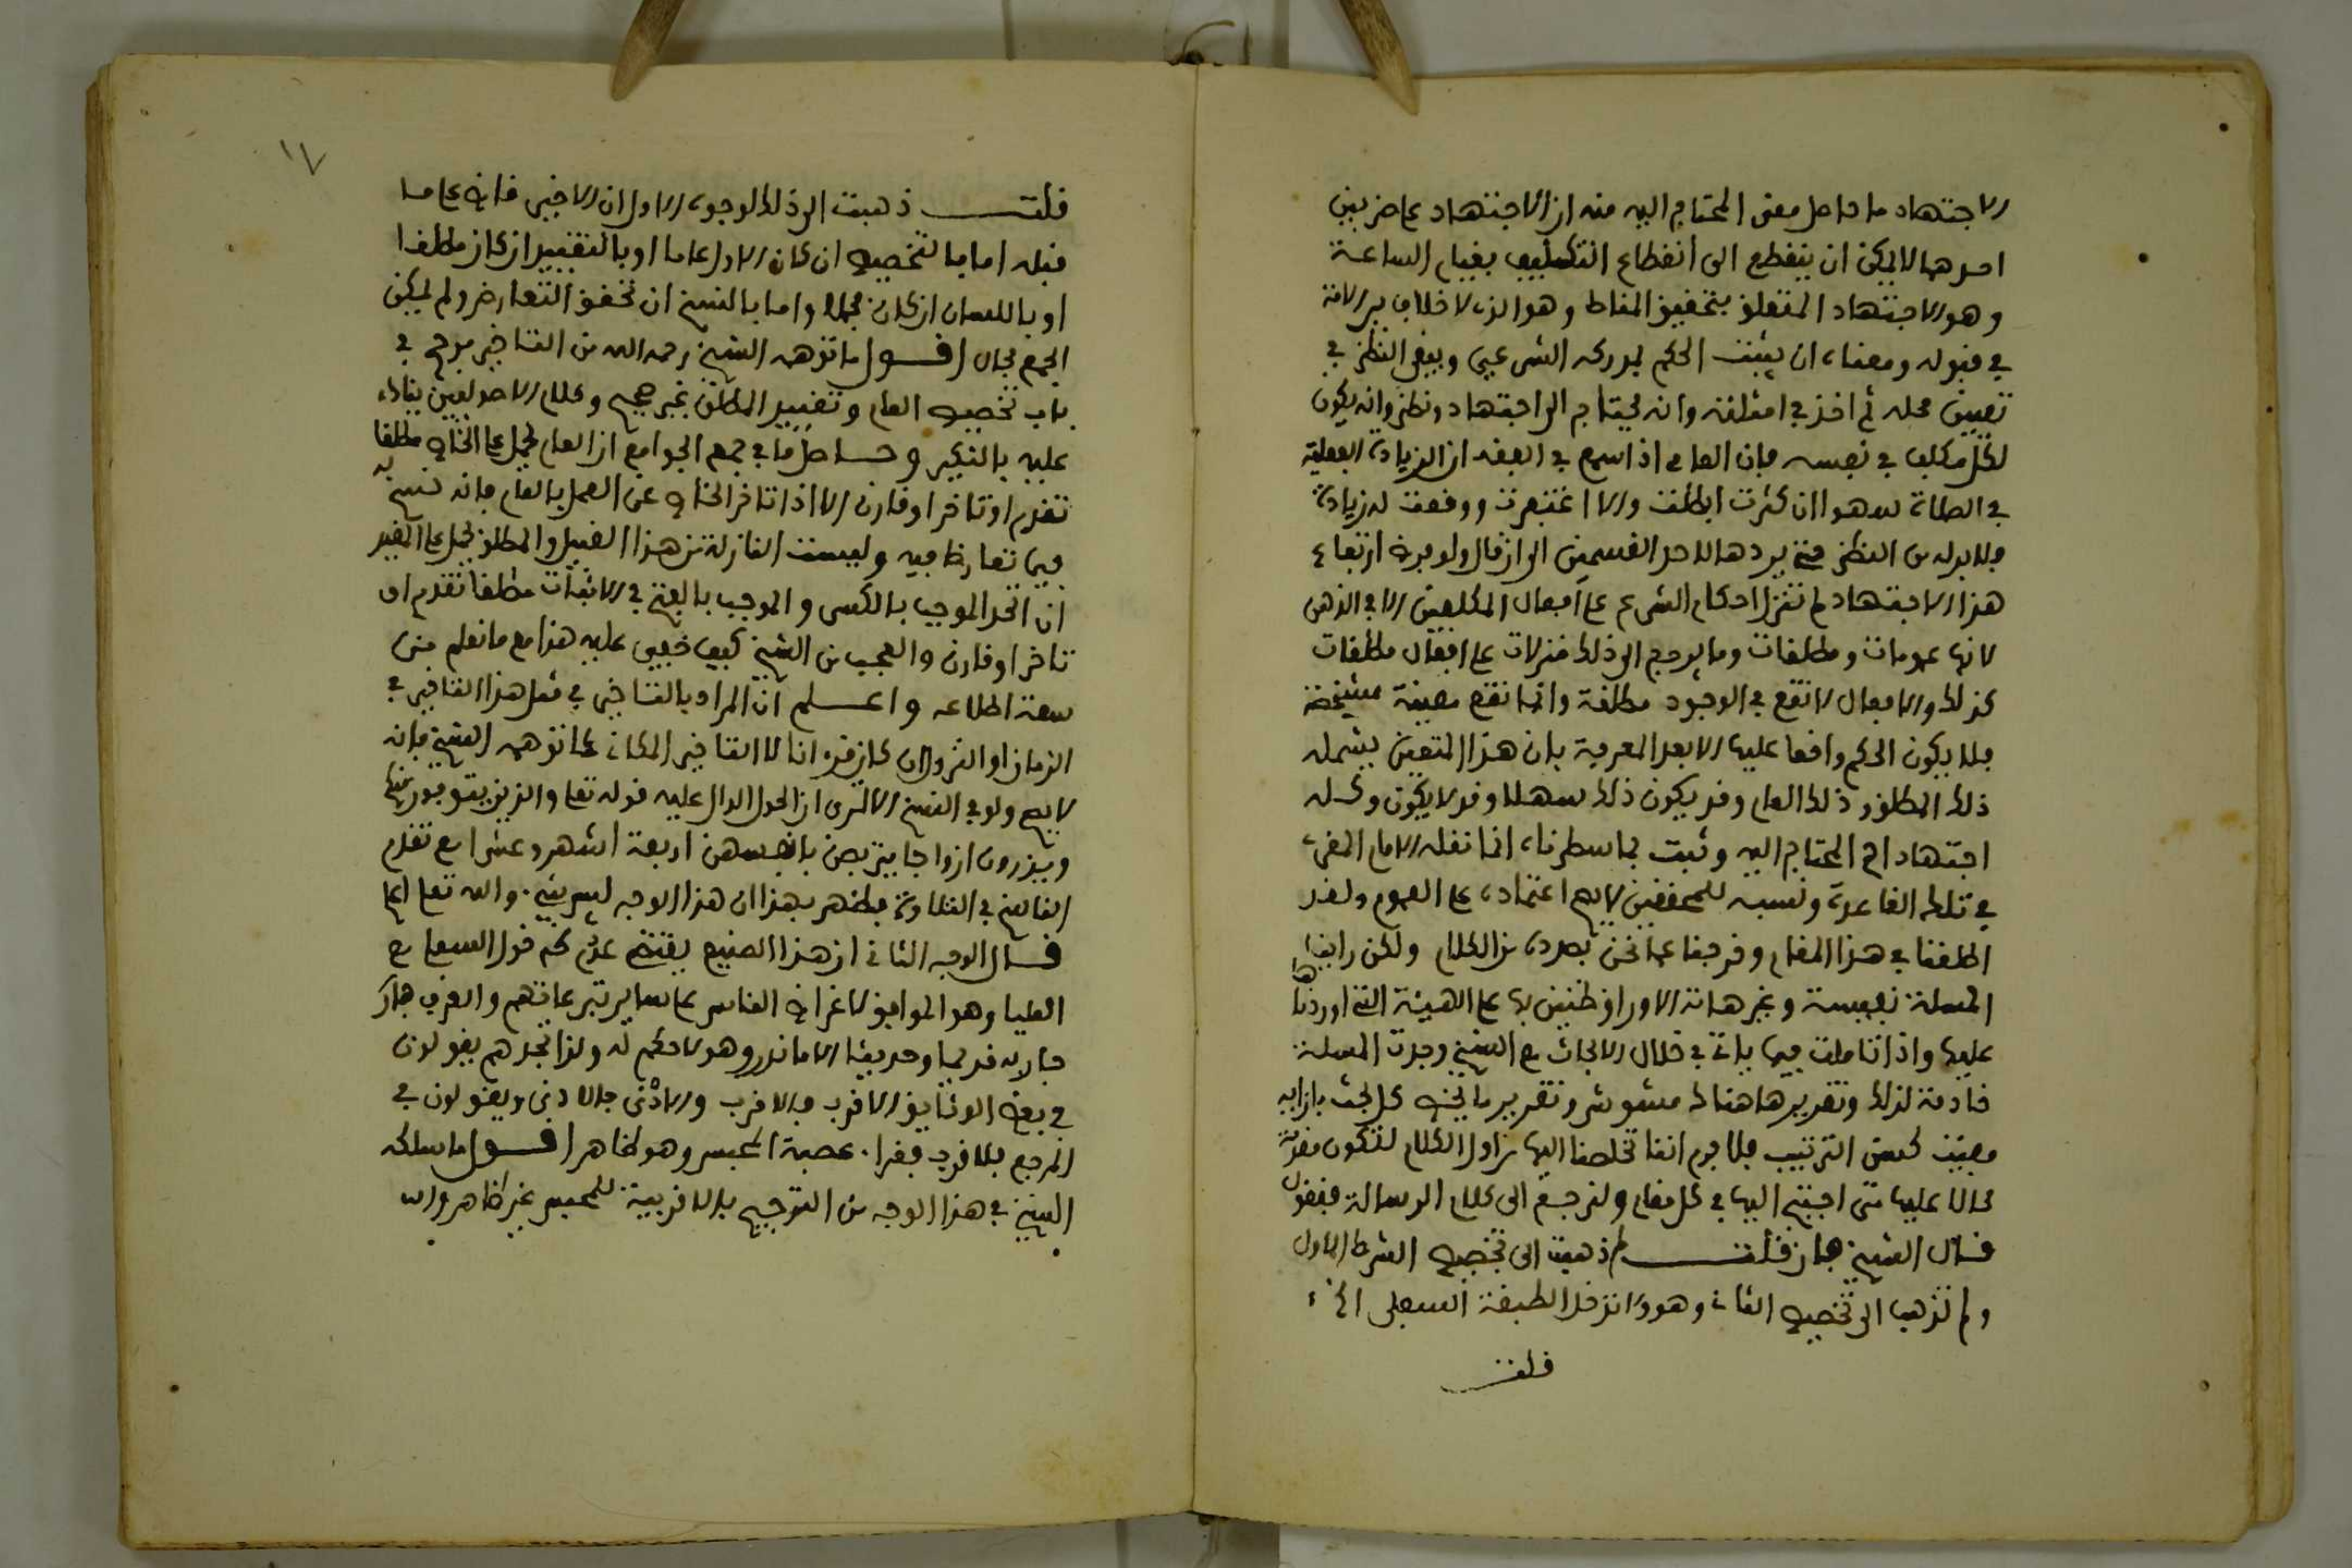 الاجتهاد ما حاصل معنى المحتاج اليه منه ان الاجتهاد على ضربين
احدهما لا يمكن ان ينقطع الى انقطاع التكليف بقيام الساعة
وهو الاجتهاد المتعلق بتحقيق المناط وهو الذي لا خلاف بين الامة
في قبوله ومعناه ان يثبت الحكم بمدركه الشرعي ويبقى النظر في
تعيين محله ثم اخذ في امثلته وانه يحتاج الى اجتهاد ونظر وانه يكون
لكل مكلف في نفسه فان العامي اذا سمع في الفقه ان الزيادة الفعلية
في الصلاة سهوا ان كثرت ابطلت والا اغتفرت ووقعت له زيادة
فلا بد له من النظر حتى يردها لاحد القسمين الى ان قال ولو فرض ارتفاع
هذا الاجتهاد لم تنزل احكام الشرع على افعال المكلفين الا في الذهن
لانها عمومات ومطلقات وما يرجع الى ذلك منزلات على افعال مطلقات
كذلك والافعال لا تقع في الوجود مطلقة وانما تقع معينة مشخصة
فلا يكون الحكم واقعا عليها الا بعد المعرفة بان هذا المعين يشمله
ذلك المطلق وذلك العام وقد يكون ذلك سهلا وقد لا يكون وكله
اجتهاد اه المحتاج اليه وثبت بما سطرناه انما نقله الامام المقري
في تلك القاعدة ونسبه للمحققين لا يصح اعتماده على العموم ولقد
اطلقنا في هذا المقام وخرجنا عما نحن بصدده من الكلام ولكن راينا
المسئلة نفيسة وغير هاته الاوراق ظنين بها على الهيئة التي اوردناها
عليها واذا تاملت فيما ياتي في خلال الابحاث مع الشيخ وجدت المسئلة
خادمة لذلك وتقريرها هنالك مشوش وتقرير ما يخص كل بحث بازايه
مفيت لحسن الترتيب فلا جرم اننا تخلصنا اليها من اول الكلام لتكون مقررة
محالا عليها متى احتيج اليها في كل مقام ولنرجع الى كلام الرسالة فنقول
قال الشيخ فان قلت لم ذهبت الى تخصيص الشرط الاول
ولم تذهب الى تخصيص الثاني وهو وان تدخل الطبقة السفلى الخ
قلت
١٧
قلت ذهبت الى ذلك لوجوه الاول ان الاخير قاض على ما
قبله اما بالتخصيص ان كان الاول عاما او بالتقييد ان كان مطلقا
او بالبيان ان كان مجملا واما بالنسخ ان تحقق التعارض ولم يمكن
الجمع بحال اقول ما توهمه الشيخ رحمه الله من التاخير مرجح في
باب تخصيص العام وتقييد المطلق غير صحيح وكلام الاصوليين يناد
عليه بالنكير وحاصل ما في جمع الجوامع ان العام يحمل على الخاص مطلقا
تقدم او تاخر او قارن الا اذا تاخر الخاص عن العمل بالعام فانه نسخ به
فيما تعارضا فيه وليست النازلة من هذا القبيل والمطلق يحمل على المقيد
ان اتحد الموجب بالكسر والموجب بالفتح في الاثبات مطلقا تقدم او
تاخر او قارن والعجب من الشيخ كيف خفي عليه هذا مع ما نعلم من
سعة اطلاعه واعلم ان المراد بالتاخير في مثل هذا التاخير في
الزمان او النزول ان كان قرءانا لا التاخير المكاني كما توهمه الشيخ فانه
لا يصح ولو في النسخ الا ترى ان الحول الدال عليه قوله تعلى والذين يتوفون منكم
ويذرون ازواجا يتربصن بانفسهن اربعة اشهر وعشرا مع تقدم
الناسخ في التلاوة فظهر بهذا ان هذا الوجه ليس بشيء والله تعلى اعلم
قال الوجه الثاني ان هذا الصنيع يقتضي عدم دخول السفلى مع
العليا وهو الموافق لاغراض الناس على ساير تبرعاتهم والعرف جار
جار به قديما وحديثا الا ما ندر وهو لا حكم له ولذا تجدهم يقولون
في بعض الوثايق الاقرب فالاقرب والادنى فالادنى ويقولون في
المرجع بالاقرب فقرا عصبة المحبس وهو ظاهر اقول ما سلكه
الشيخ في هذا الوجه من التوجيه بالاقربية للمحبس غير ظاهر والله